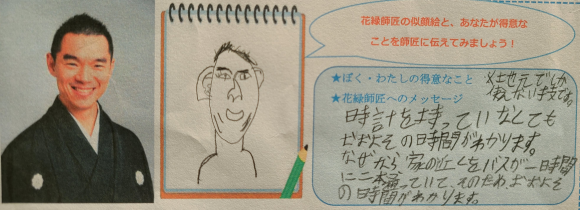 花緑師匠の似顔絵と、あなたが得意な
ことを師匠に伝えてみましょう!
★ぼく・わたしの得意なこと
※地元でしか
使えない手段です。
★花緑師匠へのメッセージ
時計を持っていなくても
おおよその時間がわかります。
なぜなら家の近くをバスが一時間
に二本通っていて、そのためおおよそ
の時間がわかります。